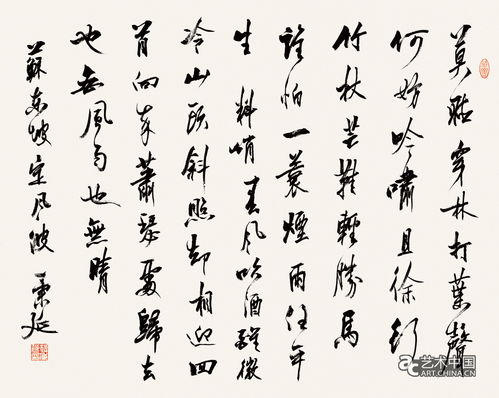 莫聽穿林打葉聲
何妨吟嘯且徐行
竹杖芒鞋輕勝馬
誰怕一蓑煙雨任平
生 料峭春風吹酒醒微
冷山頭斜照却相迎回
首向來蕭瑟處歸去
也無風雨也無晴
蘇東坡定風波
艺术中国
ART.CHINA.CN